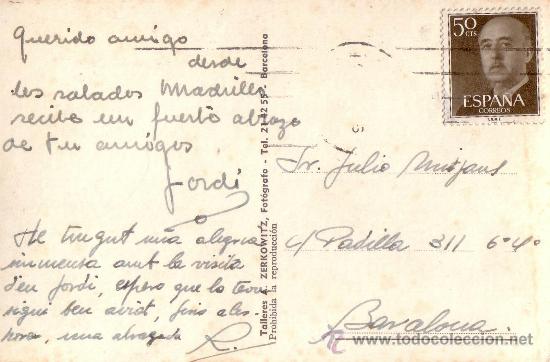 Querido amigo
desde
los salados Madriles
recibe un fuerte abrazo
de tu amigo
Jordi
He tingut una alegria
immensa amb la visita
d'en Jordi, espero que la teva
sigui ben aviat, fins ales-
hores, una abraçada
R.
Talleres A. ZERKOWITZ, Fotógrafo - Tel. 21 42 55 - Barcelona
Prohibida la reproducción
50
CTS
ESPAÑA
CORREOS
Sr. Julio
c/ Padilla 311 6º 4ª
Barcelona
todocoleccion.net